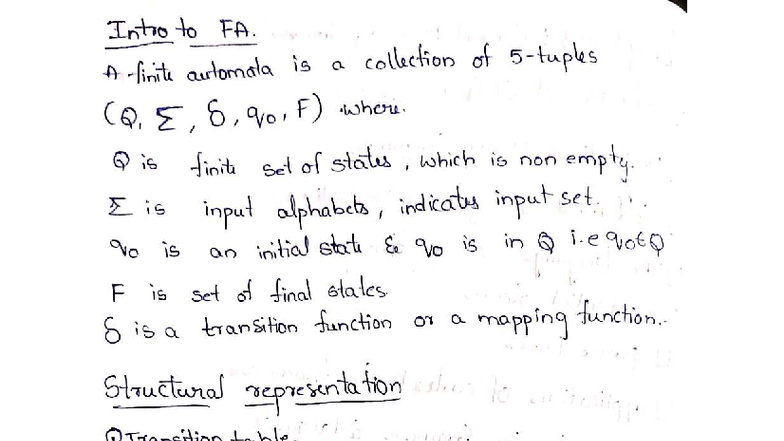 Intro to FA.
A finite automata is a collection of 5-tuples
(Q, Σ, δ, q0, F) where.
Q is finite set of states, which is non empty.
Σ is input alphabets, indicates input set.
q0 is an initial state & q0 is in Q i.e q0∈Q
F is set of final states.
δ is a transition function or a mapping function.
Structural representation
① Transition table.